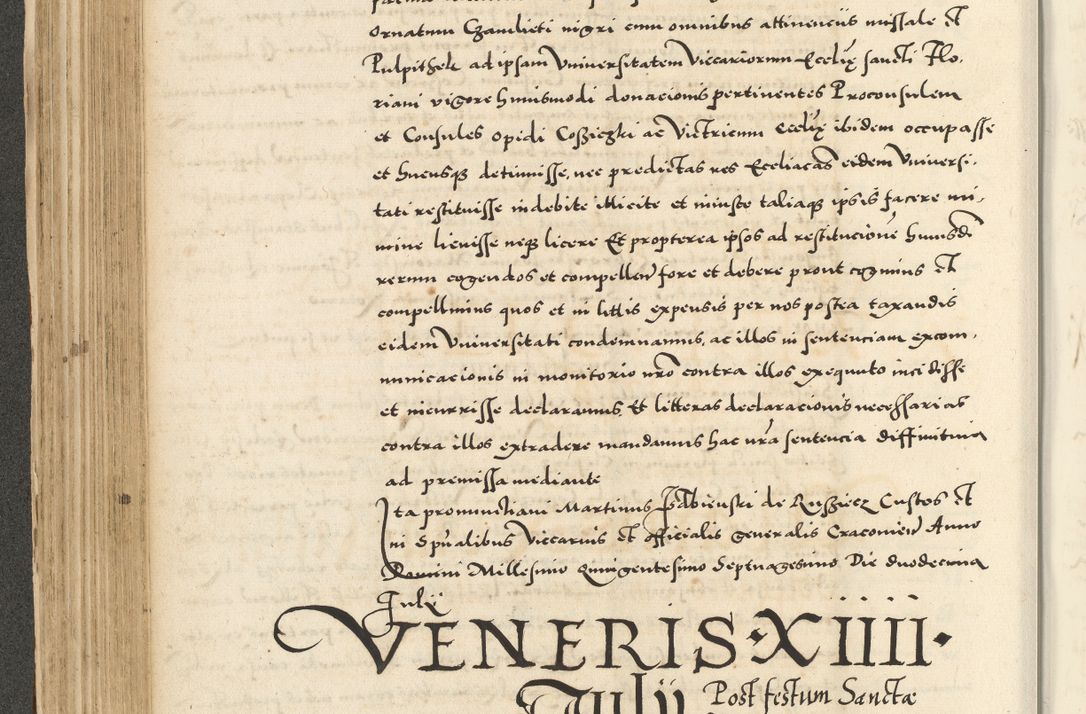 ornatum Czamlieti nigri cum omnibus attinenciis missale et
Pulpithek ad ipsam Universitatem Viccariorum Eccliȩ sancti Flo-
riani vigore huiusmodi donacionis pertinentes Proconsulem
et Consules opidi ac Victricum Eccliȩ ibidem occupasse
et hucusqȝ detinuisse, nec predictas res Eccliacas eidem Universi-
tati restituisse indebite illicite et iniuste taliaqȝ ipsis facere mi-
nime licuisse neqȝ licere Et propterea ipsos ad restitucione huiusdi
rerum cogendos et compellen fore et debere prout cogimus et
compellimus quos et in littis expensis per nos postea taxandis
eidem Universitati condemnamus, ac illos in sentenciam excom-
municacionis in monitorio nro contra illos exequuto incidisse
et incurrisse declaramus, Et litteras declaracionis necessarias
contra illos extradere mandamus hac nra sentencia diffinitiva
ad premissa mediante
Ita pronunctiavi Martinus Izdbienski de Rusziecz Custos et
in Spualibus Viccarius et officialis generalis Cracovien Anno
Domini Millesimo Quingentesimo Septuagesimo Die duodecima
Julij
VENERIS·XIIII·
Julij Post festum Sanctæ